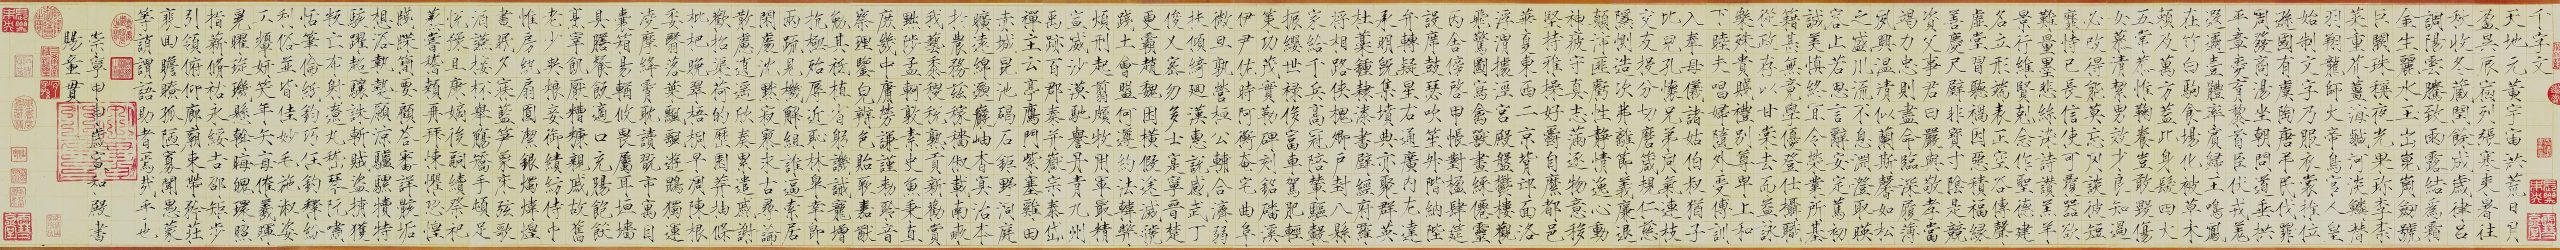 千字文
天地元黃宇宙洪荒日月
盈昃辰宿列張寒來暑往
秋收冬藏閏餘成歲律呂
調陽雲騰致雨露結為霜
金生麗水玉出崑崗劍號
巨闕珠稱夜光果珍李柰
菜重芥薑海鹹河淡鱗潛
羽翔龍師火帝鳥官人皇
始制文字乃服衣裳推位
遜國有虞陶唐弔民伐罪
周發商湯坐朝問道垂拱
平章愛育黎首臣伏戎羌
遐邇壹體率賓歸王鳴鳳
在竹白駒食場化被草木
賴及萬方蓋此身髮四大
五常恭惟鞠養豈敢毀傷
女慕清潔男效才良知過
必改得能莫忘罔談彼短
靡恃己長信使可覆器欲
難量墨悲絲染詩讚羔羊
景行維賢克念作聖德建
名立形端表正空谷傳聲
虛堂習聽禍因惡積福緣
善慶尺璧非寶寸陰是競
資父事君曰嚴與敬孝當
竭力忠則盡命臨深履薄
夙興溫凊似蘭斯馨如松
之盛川流不息淵澄取映
容止若思言辭安定篤初
誠美慎終宜令榮業所基
籍甚無竟學優登仕攝職
從政存以甘棠去而益詠
樂殊貴賤禮別尊卑上和
下睦夫唱婦隨外受傅訓
入奉母儀諸姑伯叔猶子
比兒孔懷兄弟同氣連枝
交友投分切磨箴規仁慈
隱惻造次弗離節義廉退
顛沛匪虧性靜情逸心動
神疲守真志滿逐物意移
堅持雅操好爵自縻都邑
華夏東西二京背邙面洛
浮渭據涇宮殿盤鬱樓觀
飛驚圖寫禽獸畫綵僊靈
丙舍傍啟甲帳對楹肆筵
設席鼓瑟吹笙升階納陛
弁轉疑星右通廣內左達
承明既集墳典亦聚群英
杜藁鍾隸漆書壁經府羅
將相路俠槐卿戶封八縣
家給千兵高冠陪輦驅轂
振纓世祿侈富車駕肥輕
策功茂實勒碑刻銘磻溪
伊尹佐時阿衡奄宅曲阜
微旦孰營桓公輔合濟弱
扶傾綺迴漢惠說感武丁
俊乂密勿多士寔寧晉楚
更霸趙魏困橫假途滅虢
踐土會盟何遵約法韓弊
煩刑起翦頗牧用軍最精
宣威沙漠馳譽丹青九州
禹跡百郡秦并嶽宗泰岱
禪主云亭鴈門紫塞雞田
赤城昆池碣石鉅野洞庭
曠遠綿邈巖岫杳冥治本
於農務茲稼穡俶載南畝
我藝黍稷稅熟貢新勸賞
黜陟孟軻敦素史魚秉直
庶幾中庸勞謙謹勑聆音
察理鑒貌辨色貽厥嘉猷
勉其祗植省躬譏誡寵增
抗極殆辱近恥林皋幸即
兩疏見機解組誰逼索居
閑處沉默寂寥求古尋論
散慮逍遙欣奏累遣慼謝
歡招渠荷的歷園莽抽條
枇杷晚翠梧桐早凋陳根
委翳落葉飄颻遊鵾獨運
凌摩絳霄耽讀翫市寓目
囊箱易輶攸畏屬耳垣墻
具膳餐飯適口充腸飽飫
烹宰飢厭糟糠親戚故舊
老少異糧妾御績紡侍巾
帷房紈扇圓潔銀燭煒煌
晝眠夕寐藍筍象床弦歌
酒讌接杯舉觴矯手頓足
悅豫且康嫡後嗣續祭祀
蒸嘗稽顙再拜悚懼恐惶
牋牒簡要顧答審詳骸垢
想浴執熱願涼驢騾犢特
駭躍超驤誅斬賊盜捕獲
叛亡布射遼丸嵇琴阮嘯
恬筆倫紙鈞巧任釣釋紛
利俗並皆佳妙毛施淑姿
工顰妍笑年矢每催羲暉
晃曜璇璣懸斡晦魄環照
指薪修祜永綏吉劭矩步
引領俯仰廊廟束帶矜莊
裵回瞻眺孤陋寡聞愚蒙
等誚謂語助者焉哉乎也
崇寧甲申歲宣和殿書
賜童貫